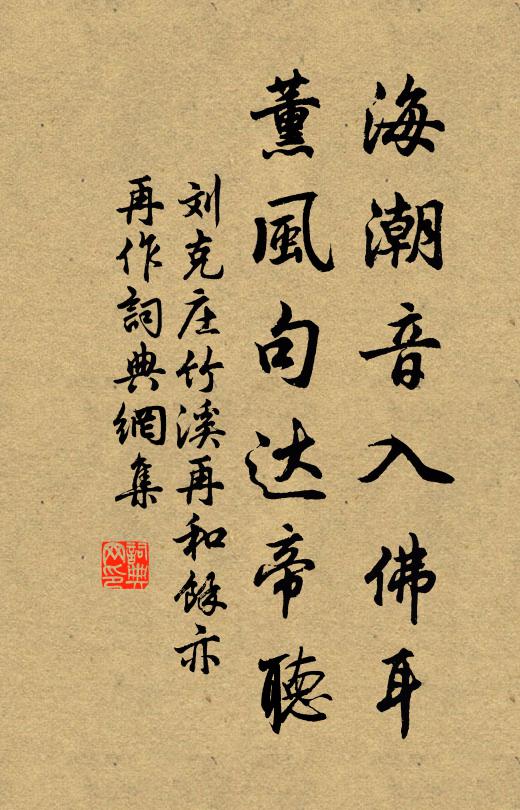 海潮音入佛耳
薰風句达帝聽
刘克庄竹溪再和餘亦
再作詞典網集
詞典
网印